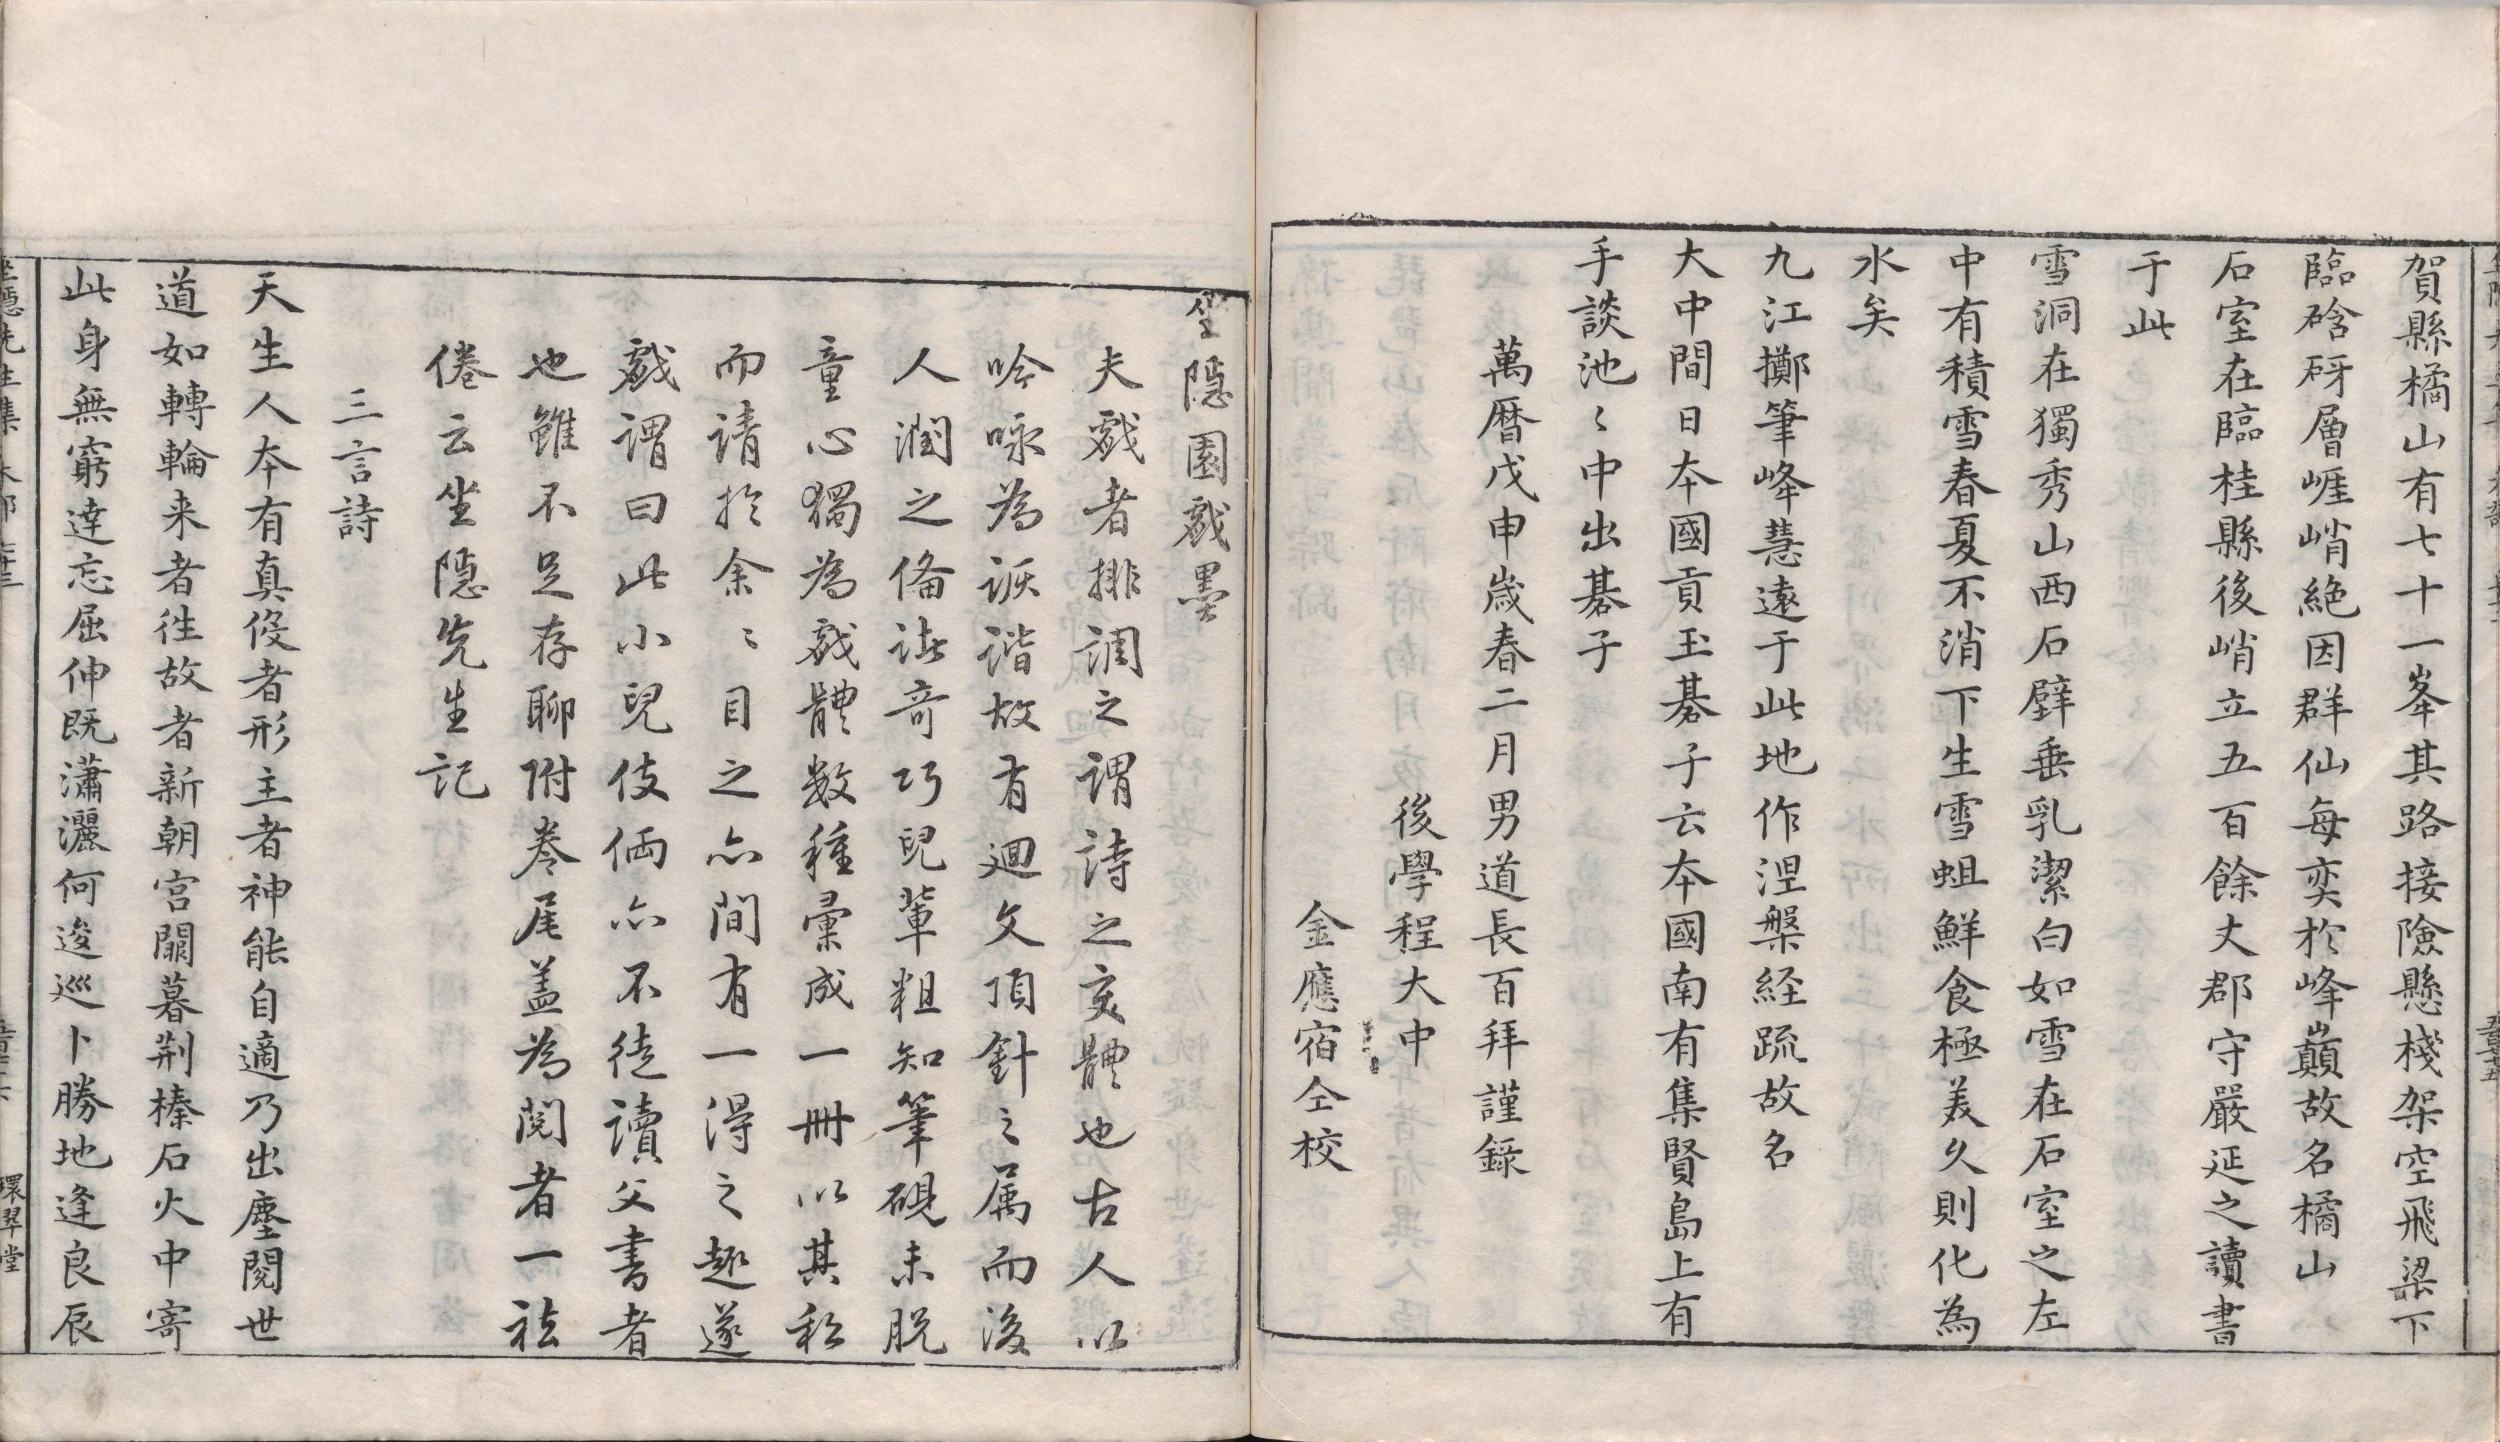 賀縣橘山有七十一峯其路接險懸棧架空飛梁下
臨硆砑層崕峭絶因群仙每奕於峰巔故名橘山
石室在臨桂縣後峭立五百餘丈郡守嚴延之讀書
于此
雪洞在獨秀山西石壁垂乳潔白如雪在石室之左
中有積雪春夏不消下生雪蛆鮮食極美久則化為
水矣
九江擲筆峰慧遠于此地作涅槃経疏故名
大中間日本國貢玉碁子云本國南有集賢島上有
手談池〻中出碁子
萬曆戊申歲春二月男道長百拜謹錄
後學程大中
金應宿仝校
坐隱園戲墨
夫戲者排調之謂詩之变體也古人以
吟咏為詼諧故有廻文頂針之属而後
人潤之俻諸奇巧兒輩粗知筆硯未脱
童心獨為戲體数種彙成一冊以其私
而請扵余〻目之亦間有一得之趣遂
戲謂曰此小兒伎倆亦不徒讀父書者
也雖不足存聊附卷尾盖為閱者一祛
倦云坐隱先生記
三言詩
天生人本有真役者形主者神能自適乃出塵閱世
道如轉輪来者徃故者新朝宮闕暮荆榛石火中寄
此身無窮達忘屈伸既瀟灑何逡巡卜勝地逢良辰
坐隱先生集
環翠堂